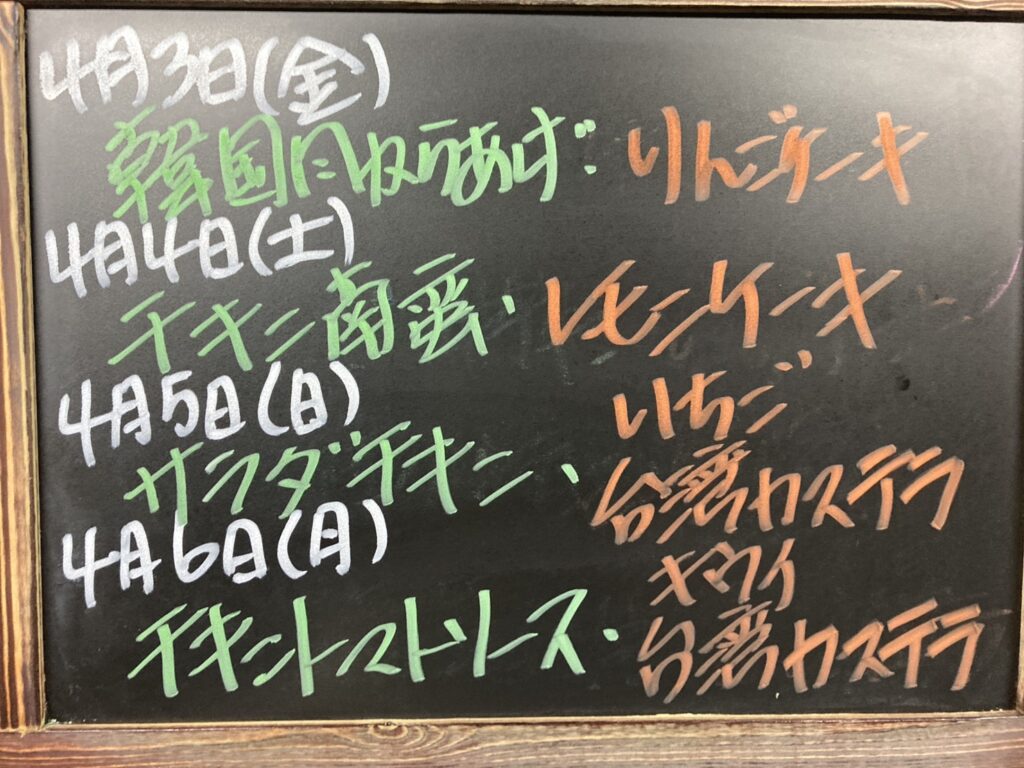 4月3日(金)
韓国風からあげ・りんごケーキ
4月4日(土)
チキン南蛮・レモンケーキ
4月5日(日)
サラダチキン・いちご
台湾カステラ
4月6日(月)
チキントマトソース・キウイ
台湾カステラ